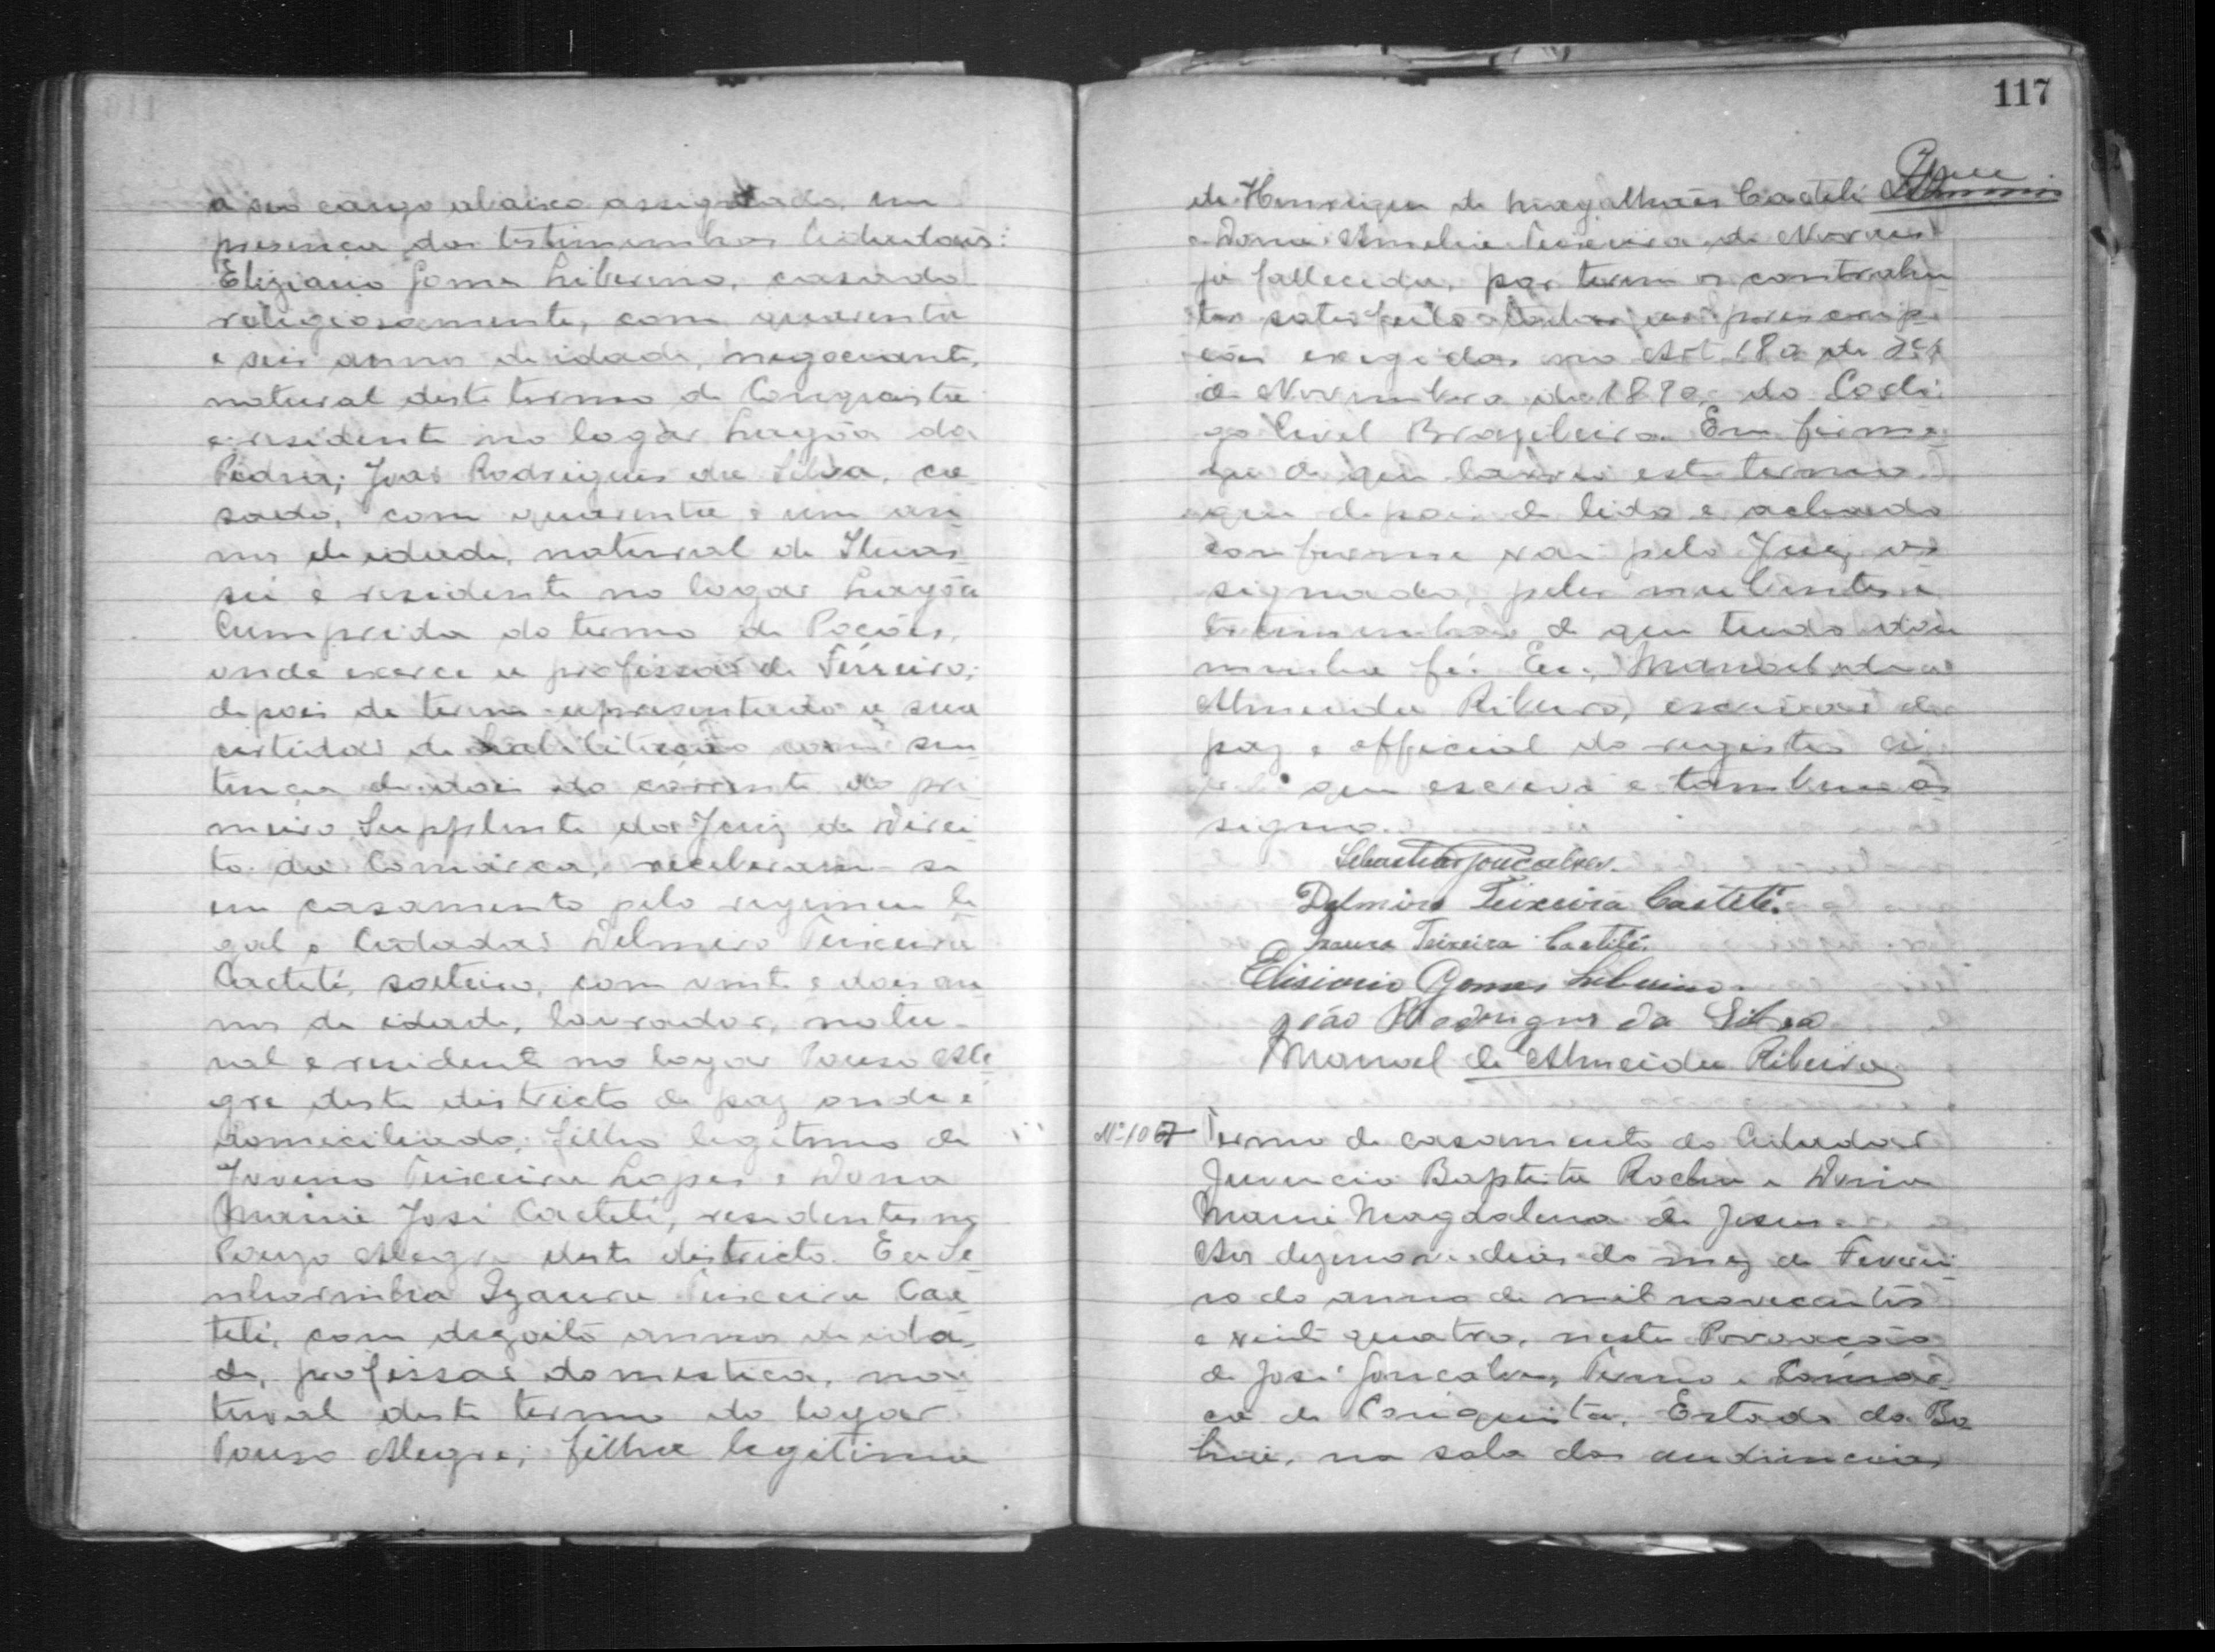 a seo cargo abaixo assignado, em
presença das testimunhas Cidadãos:
Eliziario Gomes Liberino, casado
religiosamente, com quarenta
e seis annos de idade, negociante,
natural deste termo de Conquista
e residente no logar Lagôa da
Pedra; João Rodrigues da Silva, ca-
sado, com quarenta e um an-
nos de idade, natural de Ituas-
sú e residente no logar Lagôa
Cumprida do termo de Poções,
onde exerce a profissão de Ferreiro;
depois de terem apresentado a sua
certidão de habilitação com sen-
tença de dois do corrente do pri-
meiro Supplente do Juiz de Direi-
to da Comarca, receberam-se
em casamento pelo regimen le-
gal o Cidadão Delmiro Teixeira
Caeteté, solteiro, com vinte e dois an-
nos de idade, lavrador, natu-
ral e residente no logar Pouso Ale-
gre deste districto de paz onde é
domiciliado; filho legitimo de
Teixeira Lopes e Dona
Maria José Caeteté, residentes no
Pouzo Alegre deste districto. E a Se-
nhorinha Izaura Teixeira Cae-
teté, com dezoito annos de ida-
de, profissão domestica, na-
tural deste termo do logar
Pouso Alegre; filha legitima
117
de Henrique de Magalhães Caeteté
e Dona Amelia Teixeira de Novaes
já fallecida, por terem os contrahen-
tes satisfeito todas as prescrip-
ções exigidas no Art. 180 de 24
de Novembro de 1890, do Codi-
go Civel Brazileiro. Em firme-
za de que lavrei este termo
que depois de lido e achado
conforme vai pelo Juiz as-
signado, pelos nubentes e
testimunhas de que tudo dou
minha fé. Eu, Manoel de
Almeida Ribeiro, escrivão de
paz e official do registro ci-
vel que escrevi e tambem as-
signo.
Sebastião Gonçalves.
Delmiro Teixeira Caeteté.
Izaura Teixeira Caetité.
Elisiario Gomes Liberino.
João Rodrigues da Silva
Manoel de Almeida Ribeiro
Nº 1067 Termo de casamento do Cidadão
Juvencio Baptista Rocha e Dona
Maria Magdalena de Jesus
Aos dezenove dias do mez de Feverei-
ro do anno de mil novecentos
e vinte quatro, nesta Povoação
de José Gonçalves, Termo e Comar-
ca de Conquista, Estado da Ba-
hia, na sala das audiencias